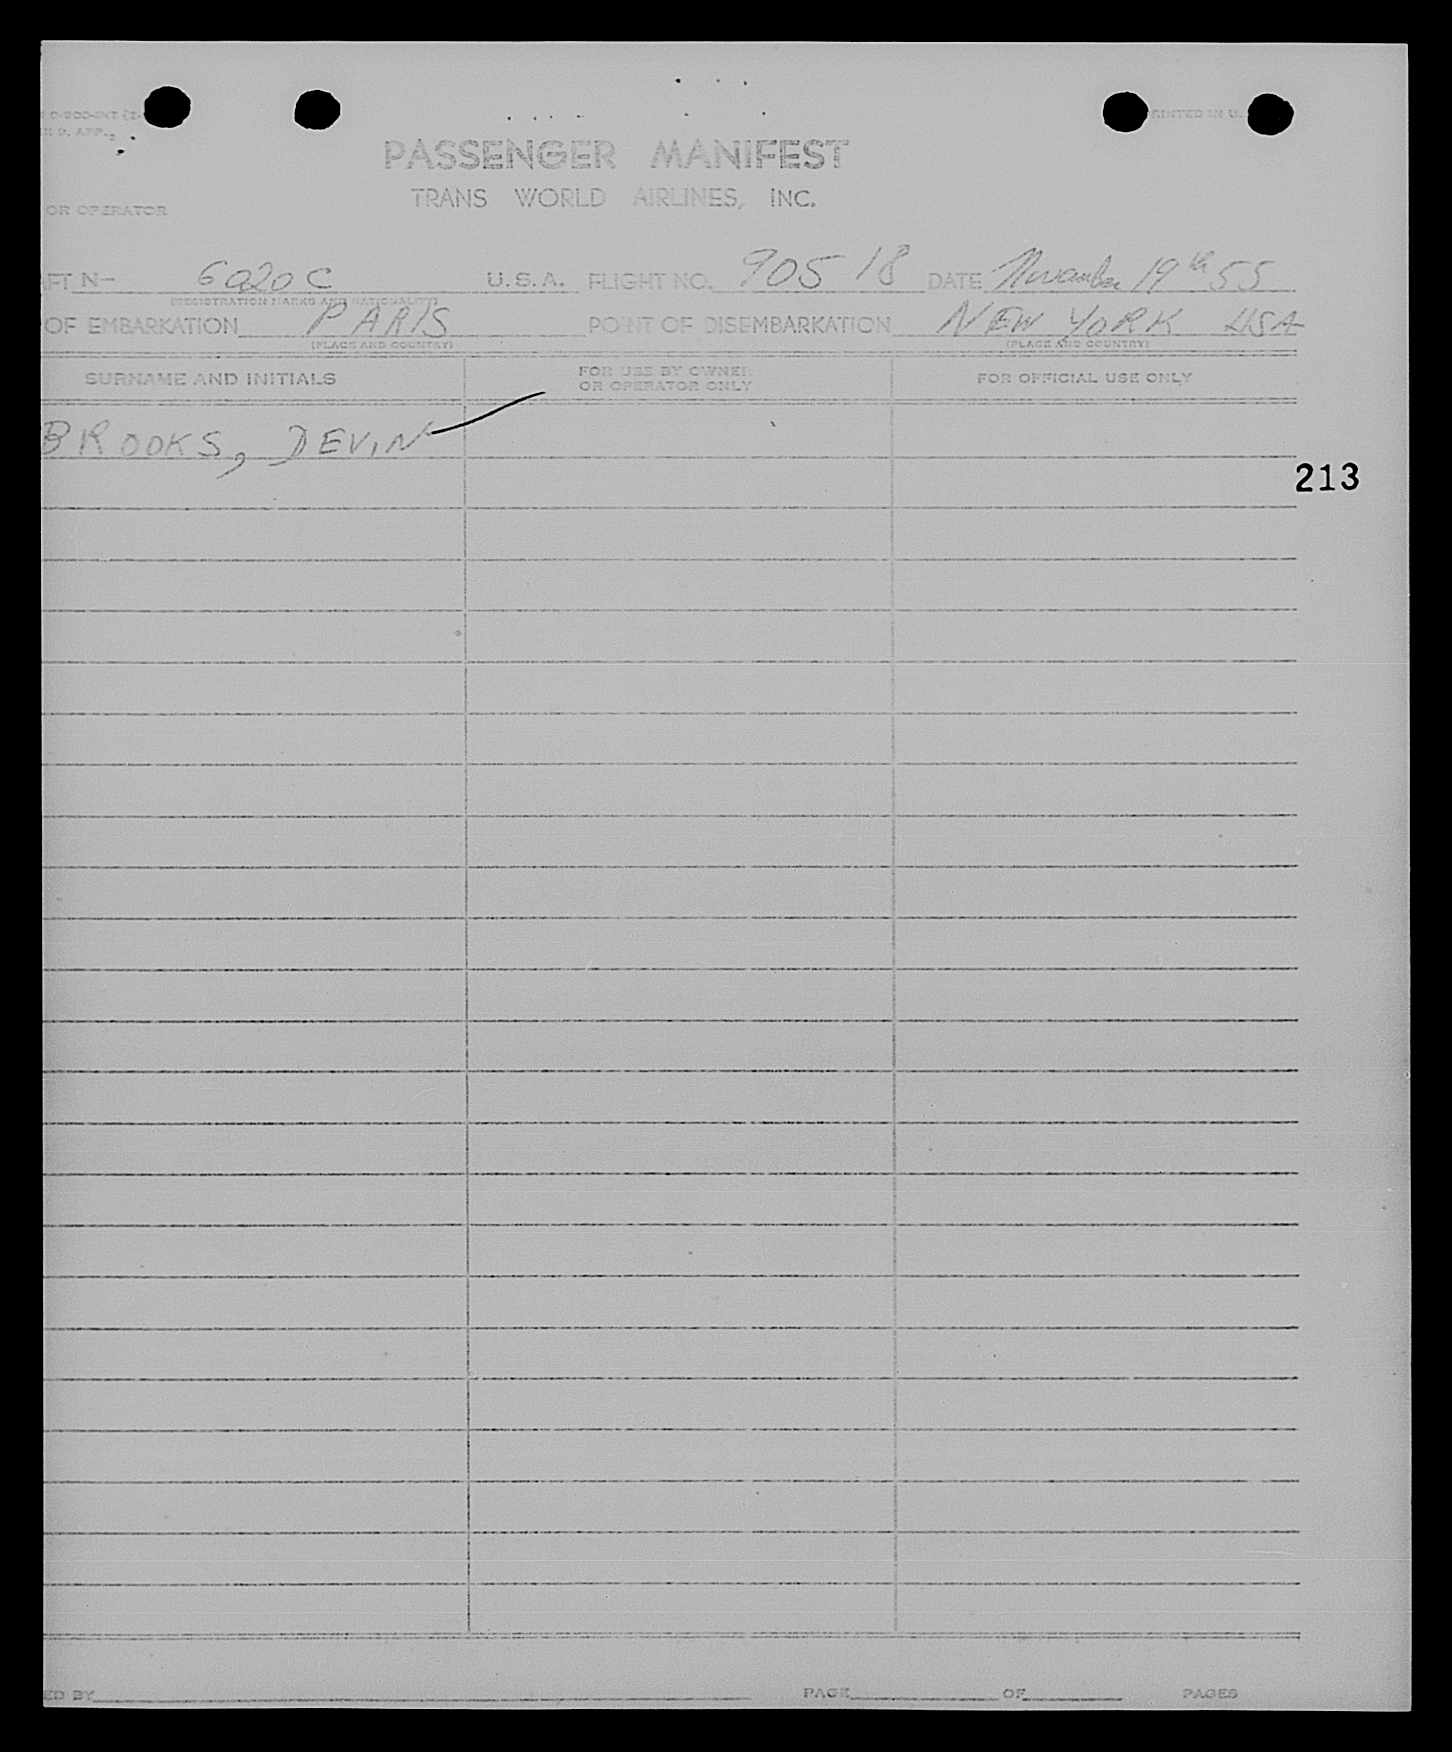 PRINTED IN U.
PASSENGER MANIFEST
TRANS WORLD AIRLINES, INC.
OR OPERATOR
AFT N- 6020 C U.S.A. FLIGHT NO. 905 18 DATE November 19th 55
(REGISTRATION MARKS AND NATIONALITY)
OF EMBARKATION PARIS POINT OF DISEMBARKATION NEW YORK USA
(PLACE AND COUNTRY) (PLACE AND COUNTRY)
SURNAME AND INITIALS FOR USE BY OWNER OR OPERATOR ONLY FOR OFFICIAL USE ONLY
BROOKS, DEVIN
213
ED BY PAGE OF PAGES